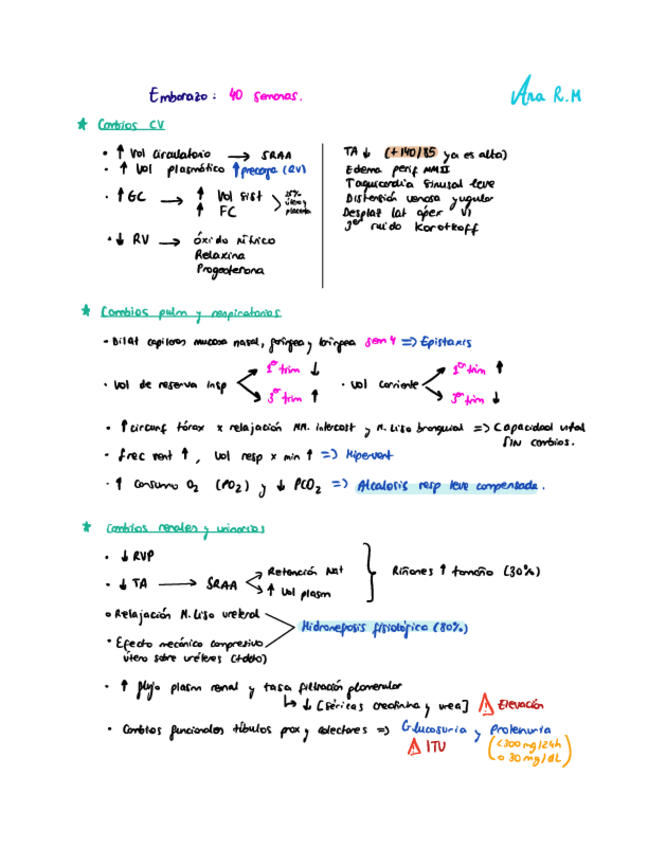 Embarazo: 40 semanas.
Ana R.M
★ Cambios CV
• ↑ Vol circulatorio → SRAA
• ↑ Vol plasmático ↑ precarga (RV)
• ↑ GC → ↑ Vol sist
↑ FC
25% útero y placenta
• ↓ RV → óxido nítrico
Relaxina
Progesterona
TA ↓ (+140/85 ya es alta)
Edema perif MMII
Taquicardia sinusal leve
Distensión venosa yugular
Desplat lat ápex VI
3er ruido Korotkoff
★ Cambios pulm y respiratorios
• Dilat capilares mucosa nasal, faríngea y laríngea sem 4 => Epistaxis
• Vol de reserva insp
1er trim ↓
3er trim ↑
• Vol corriente
1er trim ↑
3er trim ↓
• ↑ circunf tórax x relajación MM. intercost y M. liso bronquial => Capacidad vital
SIN cambios.
• Frec vent ↑, Vol resp x min ↑ => Hipervent
• ↑ consumo O2 (PO2) y ↓ PCO2 => Alcalosis resp leve compensada.
★ Cambios renales y urinarios
• ↓ RVP
• ↓ TA → SRAA
Retención Na+
↑ Vol plasm
Riñones ↑ tamaño (30%)
• Relajación M. liso ureteral
• Efecto mecánico compresivo
útero sobre uréteres (+ddo)
Hidronefosis fisiológica (80%)
• ↑ flujo plasm renal y tasa filtración glomerular
↳ ↓ [séricas creatinina y urea] ⚠ Elevación
• Cambios funcionales túbulos prox y colectores => Glucosuria y Proteinuria
⚠ ITU
(<300 mg/24h
o 30 mg/dL)